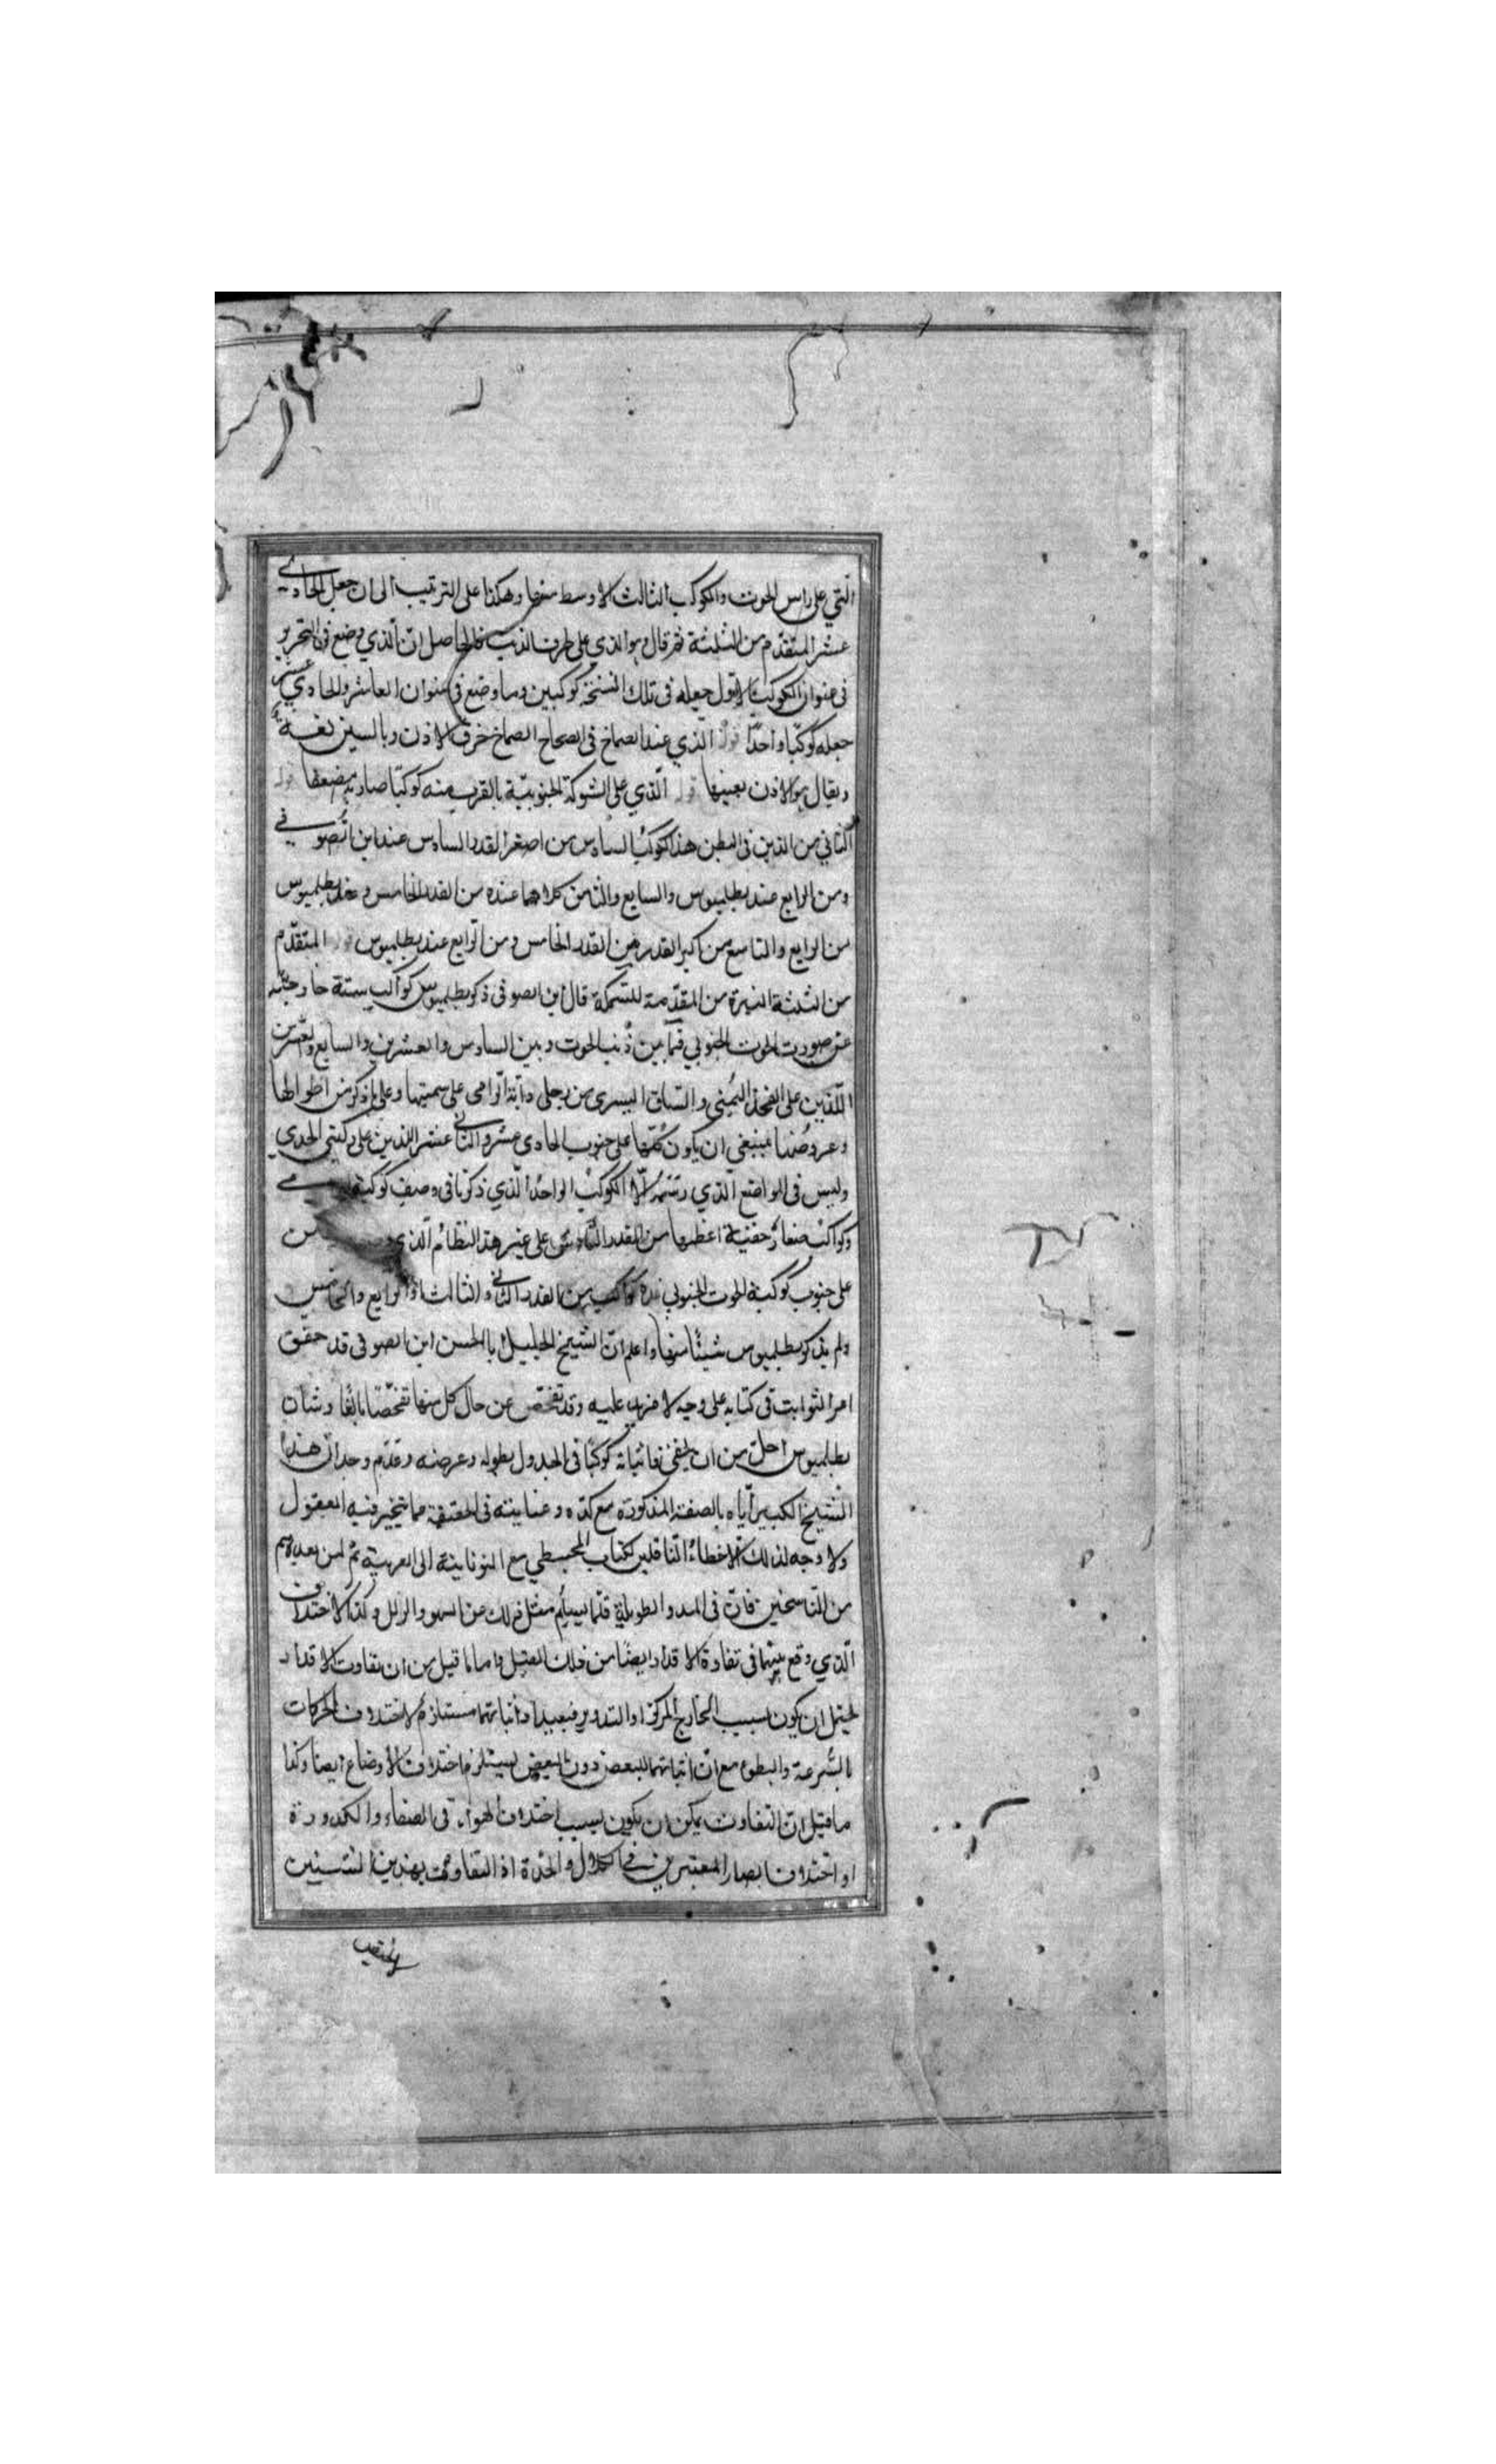 التي على راس الحوت والكوكب الثالث الاوسط منها وهكذا على الترتيب الى ان جعل الحادي
عشر المتقدم من الثلثة ثم قال وهو الذي على طرف الذنب فالحاصل ان الذي وضع في التحرير
في عنوان الكوكب الاول جعله في تلك النسخة كوكبين وما وضع في عنوان العاشر والحادي عشر
جعله كوكبا واحدا قوله الذي عند الصماخ في الصحاح الصماخ خرق الاذن وبالسين لغة
ويقال هو الاذن بعينها قوله الذي على الشوكة الجنوبية بالقرب منه كوكبا صار به مضعفا قوله
الثاني من الذين في البطن هذا كوكب السادس من اصغر القدر السادس عند ابن الصوفي
ومن الرابع عند بطلميوس والسابع والثامن كلاهما عنده من القدر الخامس وعند بطلميوس
من الرابع والتاسع من اكبر القدر من القدر الخامس ومن الرابع عند بطلميوس قوله المتقدم
من الثلثة النيرة من المقدمة للسمكة قال ابن الصوفي ذكر بطلميوس كواكب ستة خارجة
عن صورت الحوت الجنوبي فيما بين ذنب الحوت وبين السادس والعشرين والسابع والعشرين
اللذين على الفخذ اليمنى والساق اليسرى من رجلي دابة الرامي على سمتيها وعلى ما ذكر من اطوالها
وعروضها فينبغي ان يكون كلها على جنوب الحادي عشر والثاني عشر اللذين على ركبتي الجدي
وليس في المواضع الذي رسمه الا الكوكب الواحد الذي ذكرنا في وصف كوكبة
وكواكب صغار خفية اعظمها من القدر السادس على غير هذا النظام الذي
على جنوب كوكبة الحوت الجنوبي كواكب من القدر الثاني والثالث والرابع والخامس
ولم يذكر بطلميوس شيئا منها واعلم ان الشيخ الجليل ابا الحسن ابن الصوفي قد حقق
امر الثوابت في كتابه على وجه لا مزيد عليه وقد تفحص عن حال كل منها تفحصا بالغا وشان
بطلميوس اجل من ان يلقى كوكبا في الجدول بطوله وعرضه وعدم وجدان هذا
الشيخ الكبير اياه بالصفة المذكورة مع كده وعنايته في الحقيقة مما يتحير فيه العقول
ولا وجه لذلك الا خطاء الناقلين لكتاب المجسطي مع اليونانية الى العربية ثم لمن بعدهم
من الناسخين فان في المدد الطويلة قلما يسلم مثل ذلك من السهو والزلل وكذا الاختلاف
الذي وقع بينهما في تفاوة الاقدار ايضا من ذلك القبيل واما ما قيل من ان تفاوت الاقدار
يحتمل ان يكون بسبب الخارج المركز او التدوير فبعيد اذ اثباتهما مستلزم لاختلاف الحركات
بالسرعة والبطوء مع ان اثباتهما للبعض دون البعض يستلزم اختلاف الاوضاع ايضا وكذا
ما قيل ان التفاوت يمكن ان يكون بسبب اختلاف الهواء في الصفاء والكدورة
او اختلاف ابصار المعتبرين في الكلال والحدة اذ التفاوت بهذين الشيئين